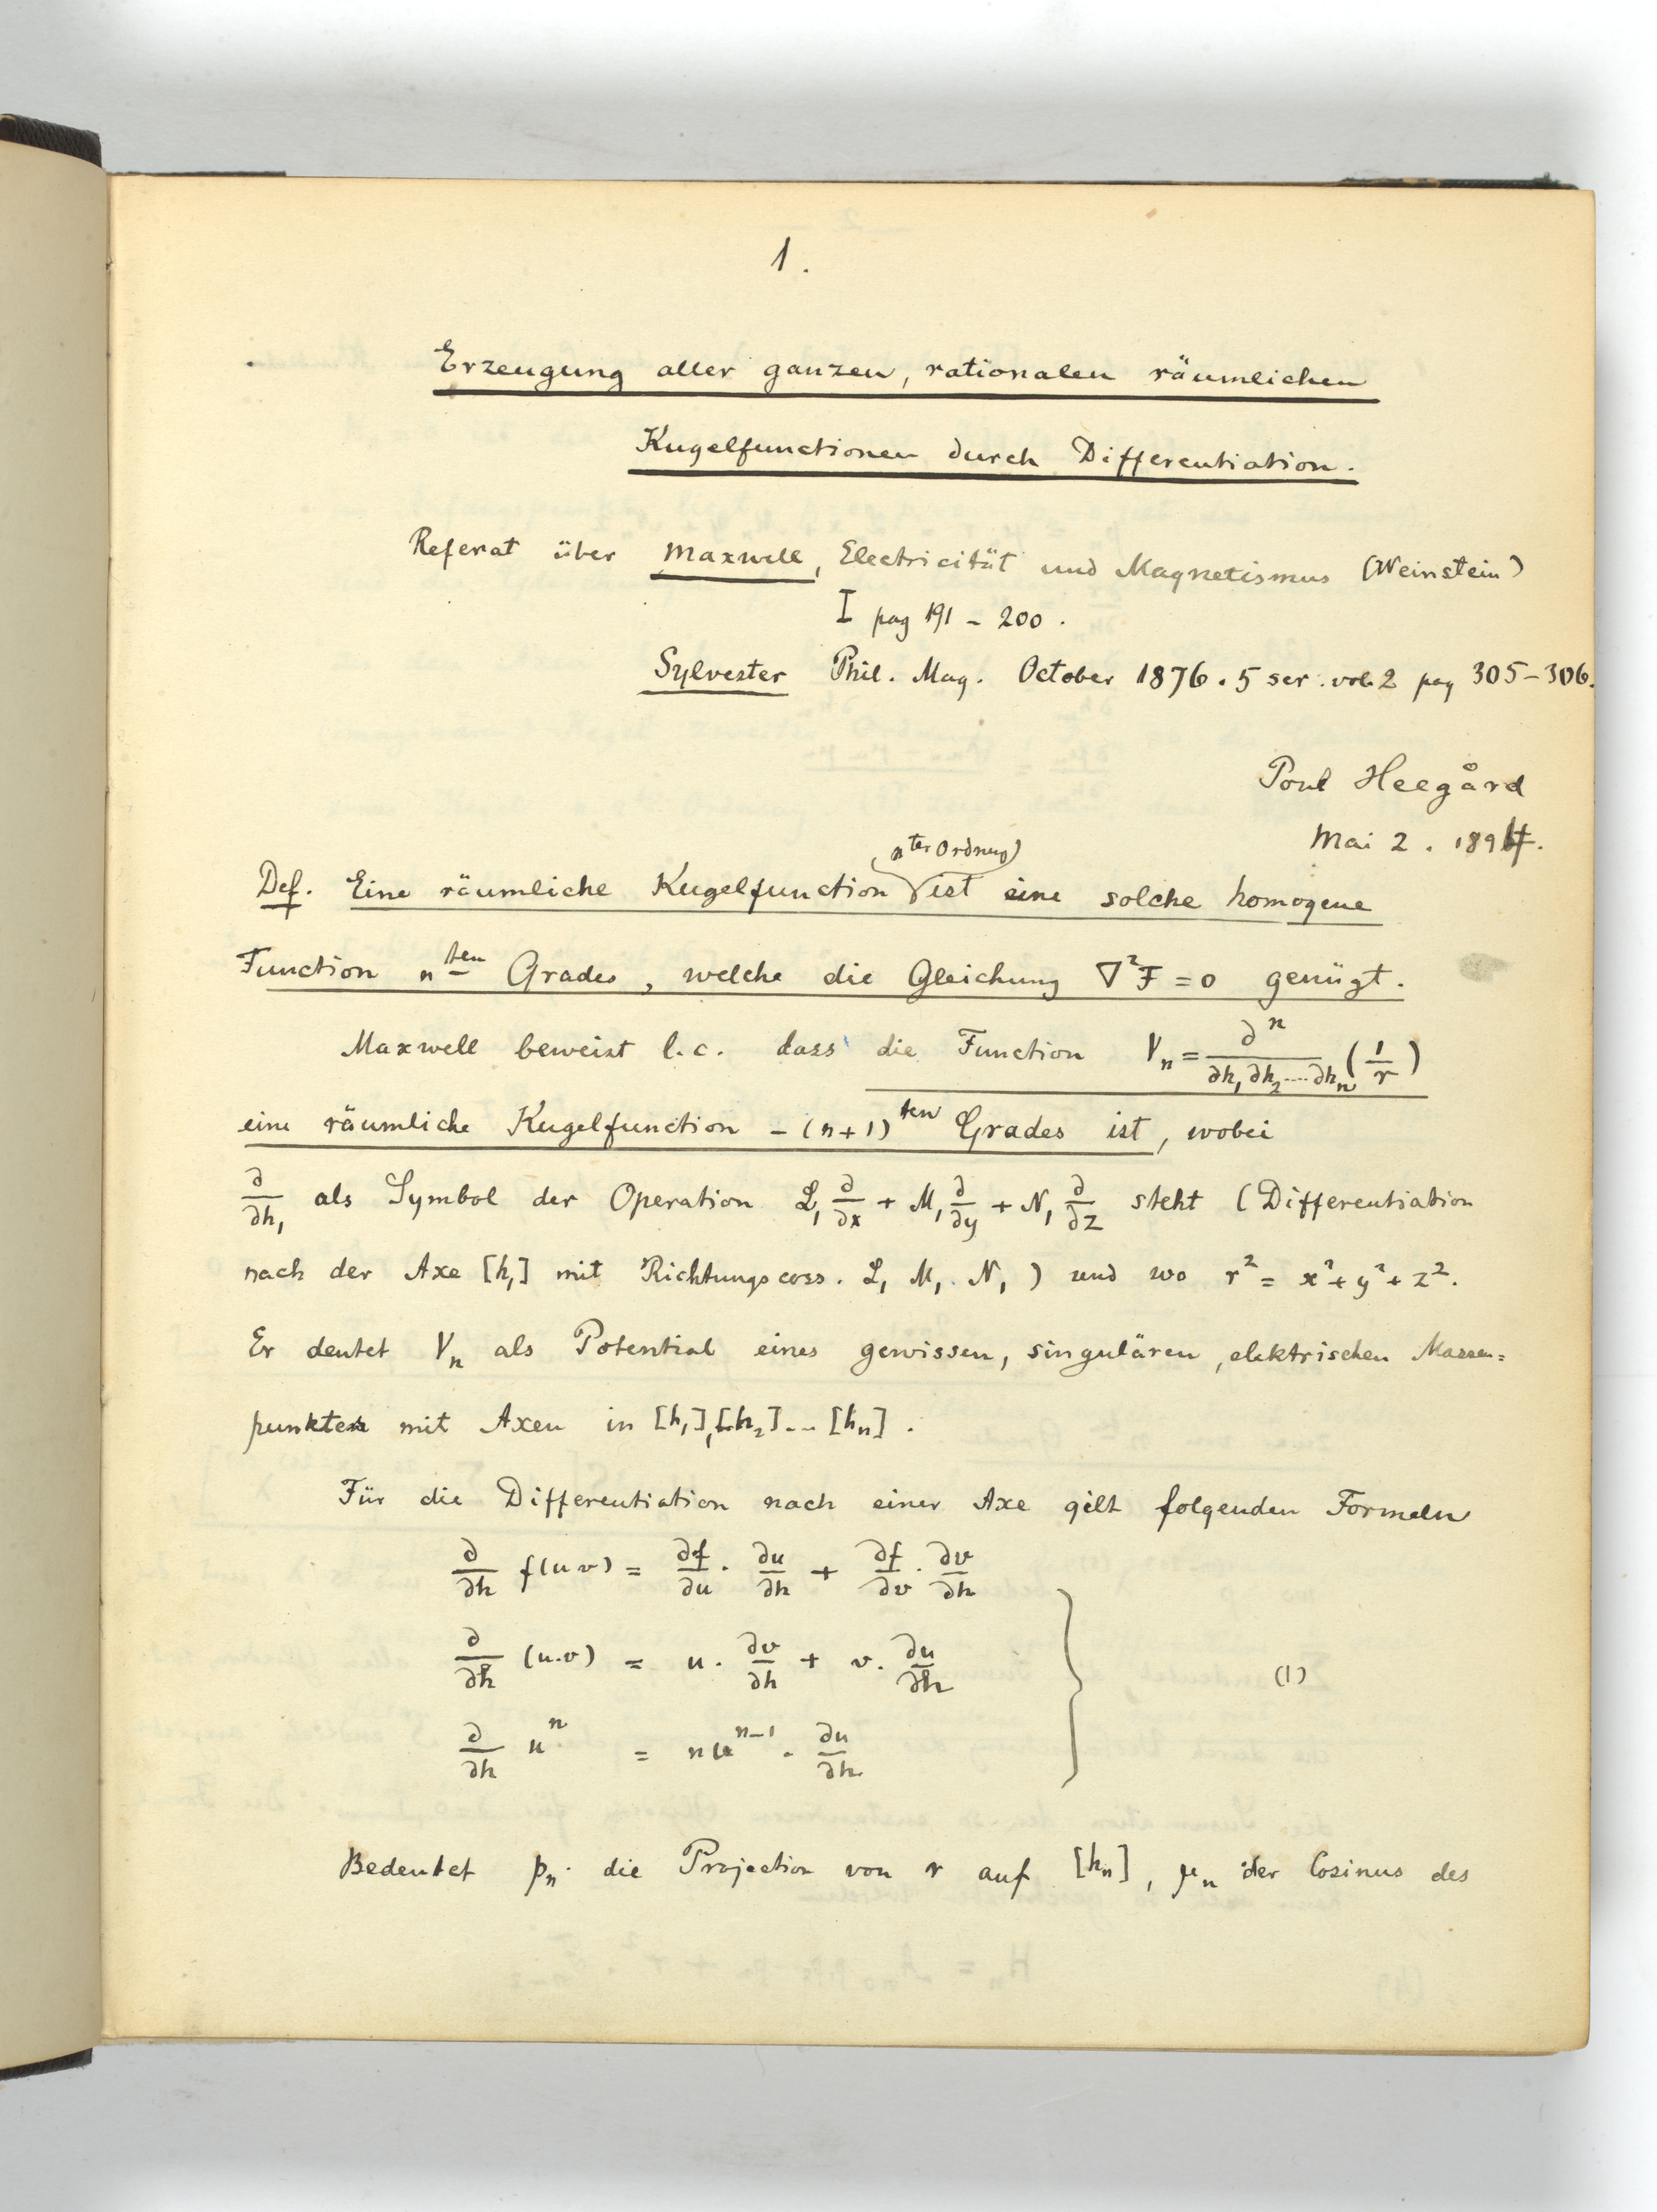 1.
Erzeugung aller ganzen, rationalen räumlichen
Kugelfunctionen durch Differentiation.
Referat über Maxwell, Electricität und Magnetismus (Weinstein)
I pag 191 – 200.
Sylvester Phil. Mag. October 1876. 5 ser. vol. 2 pag 305–306.
Poul Heegård
Mai 2. 1894.
(nter Ordnung)
Def. Eine räumliche Kugelfunction ist eine solche homogene
Function nten Grades, welche die Gleichung ∇²F = 0 genügt.
Maxwell beweist l.c. dass die Function Vₙ = ∂ⁿ/(∂h₁ ∂h₂ .... ∂hₙ) (1/r)
eine räumliche Kugelfunction –(n+1)ten Grades ist, wobei
∂/∂h₁ als Symbol der Operation L₁ ∂/∂x + M₁ ∂/∂y + N₁ ∂/∂z steht (Differentiation
nach der Axe [h₁] mit Richtungscoss. L₁ M₁ N₁) und wo r² = x² + y² + z².
Er deutet Vₙ als Potential eines gewissen, singulären, elektrischen Massen=
punktes mit Axen in [h₁], [h₂] ... [hₙ].
Für die Differentiation nach einer Axe gilt folgenden Formeln
∂/∂h f(u v) = ∂f/∂u · ∂u/∂h + ∂f/∂v · ∂v/∂h
∂/∂h (u.v) = u · ∂v/∂h + v · ∂u/∂h (1)
∂/∂h uⁿ = n uⁿ⁻¹ · ∂u/∂h
Bedeutet pₙ die Projection von r auf [hₙ], μₙ der Cosinus des